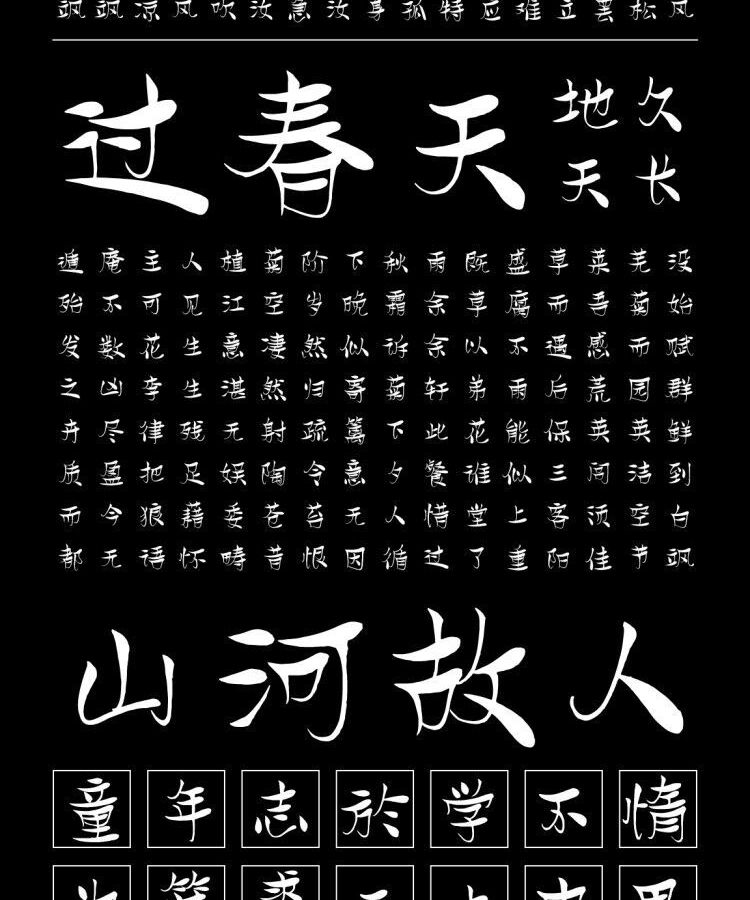 飒飒凉风吹汝急汝身孤特应难立罢松风
过春天
地久
天长
遁庵主人植菊阶下秋雨既盛草莱芜没
殆不可见江空岁晚霜余草腐而吾菊始
发数花生意凄然似诉余以不遇感而赋
之凶李生湛然归寄菊轩弟雨后荒园群
卉尽律残无射疏篱下此花能保英英鲜
质盈把足娱陶令意夕餐谁似三闾洁到
而今狼藉委苍苔无人惜堂上客须空白
都无语怀畴昔恨因循过了重阳佳节飒
山河故人
童年志於学不惰